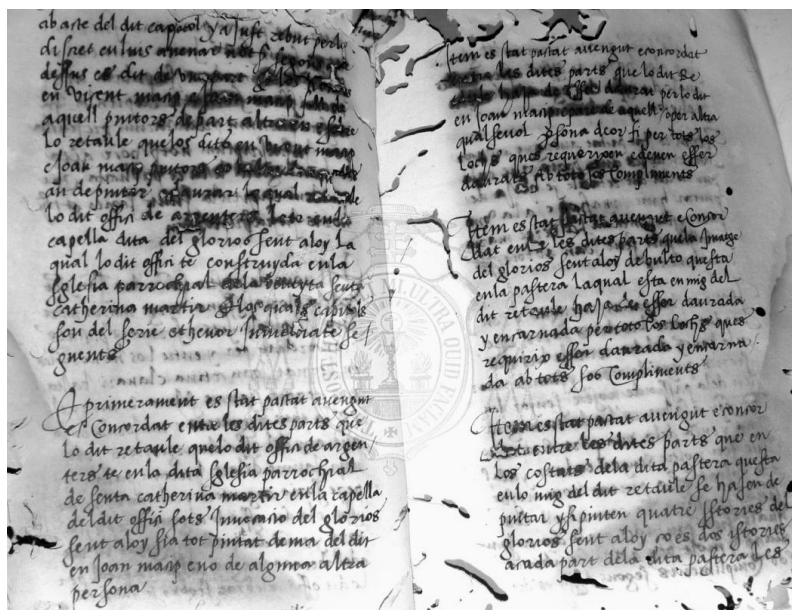 ab acte del dit capitol y a just rebut per lo
discret en luis avenar not fi segons que
dessus es dit de una part
en vicent macip e Joan macip fill de
aquell pintors de part altra en e sobre
lo retaule quelos dits en vicent macip
e Joan macip pintors
an de pintar e daurar lo qual retaule
lo dit offici de argenters te
capella dita del glorios sent aloy la
qual lo dit offici te construyda en la
sglesia parrochial de la beneyta senta
catherina martir e los quals capitols
son del serie e thenor Inmediate se
guents
E primerament es stat pactat avengut
e Concordat entre les dites parts que
lo dit retaule quelo dit offici de argen
ters te en la dita sglesia parrochial
de senta catherina martir en la capella
del dit offici sots Invocacio del glorios
sent aloy sia tot pintat de ma del dit
en Joan macip e no de alguna altra
persona
Item es stat pactat avengut e concordat
entre les dites parts que lo dit Re
taule haja de esser daurat per lo dit
en Joan macip e pare de aquell o per altra
qualsevol persona de or fi per tots los
lochs ques requerixen e deven esser
daurats ab tots sos Compliments
Item es stat pactat avengut e Concor
dat entre les dites parts que la Imatge
del glorios sent aloy de bulto questa
en la pastera la qual esta en mig del
dit retaule haja de esser daurada
y encarnada per tots los lochs ques
requirix esser daurada y encarna
da ab tots sos Compliments
Item es stat pactat avengut e concor
dat entre les dites parts que en
los costats de la dita pastera questa
en lo mig del dit retaule se hajen de
pintar y se pinten quatre istories del
glorios sent aloy co es dos istories
a cada part de la dita pastera les